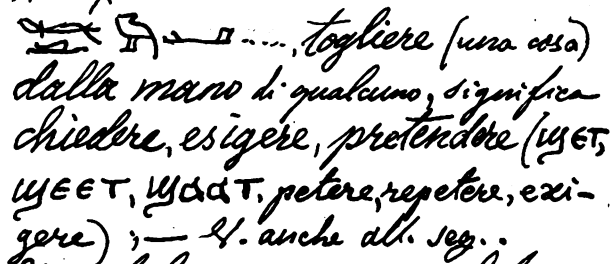 ....., togliere (una cosa)
dalla mano di qualcuno, significa
chiedere, esigere, pretendere (ϣⲉⲧ,
ϣⲉⲉⲧ, ϣⲁⲁⲧ, petere, repetere, exi-
gere) ; — V. anche all. seg..